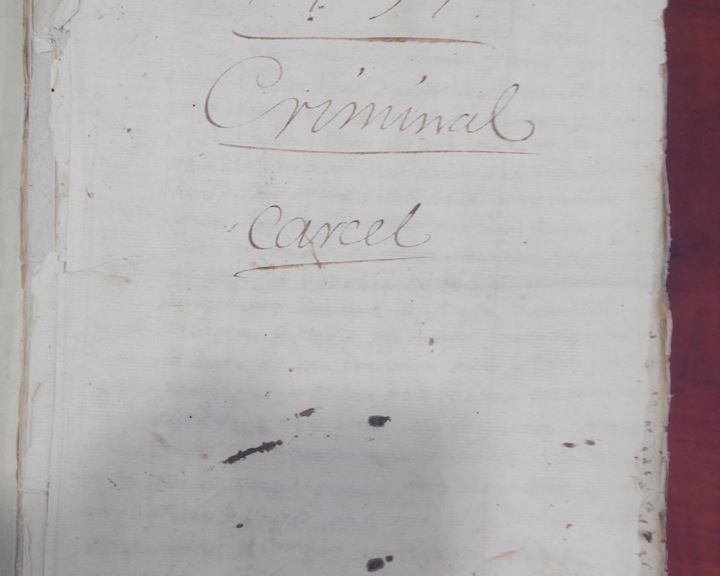 Criminal
carcel